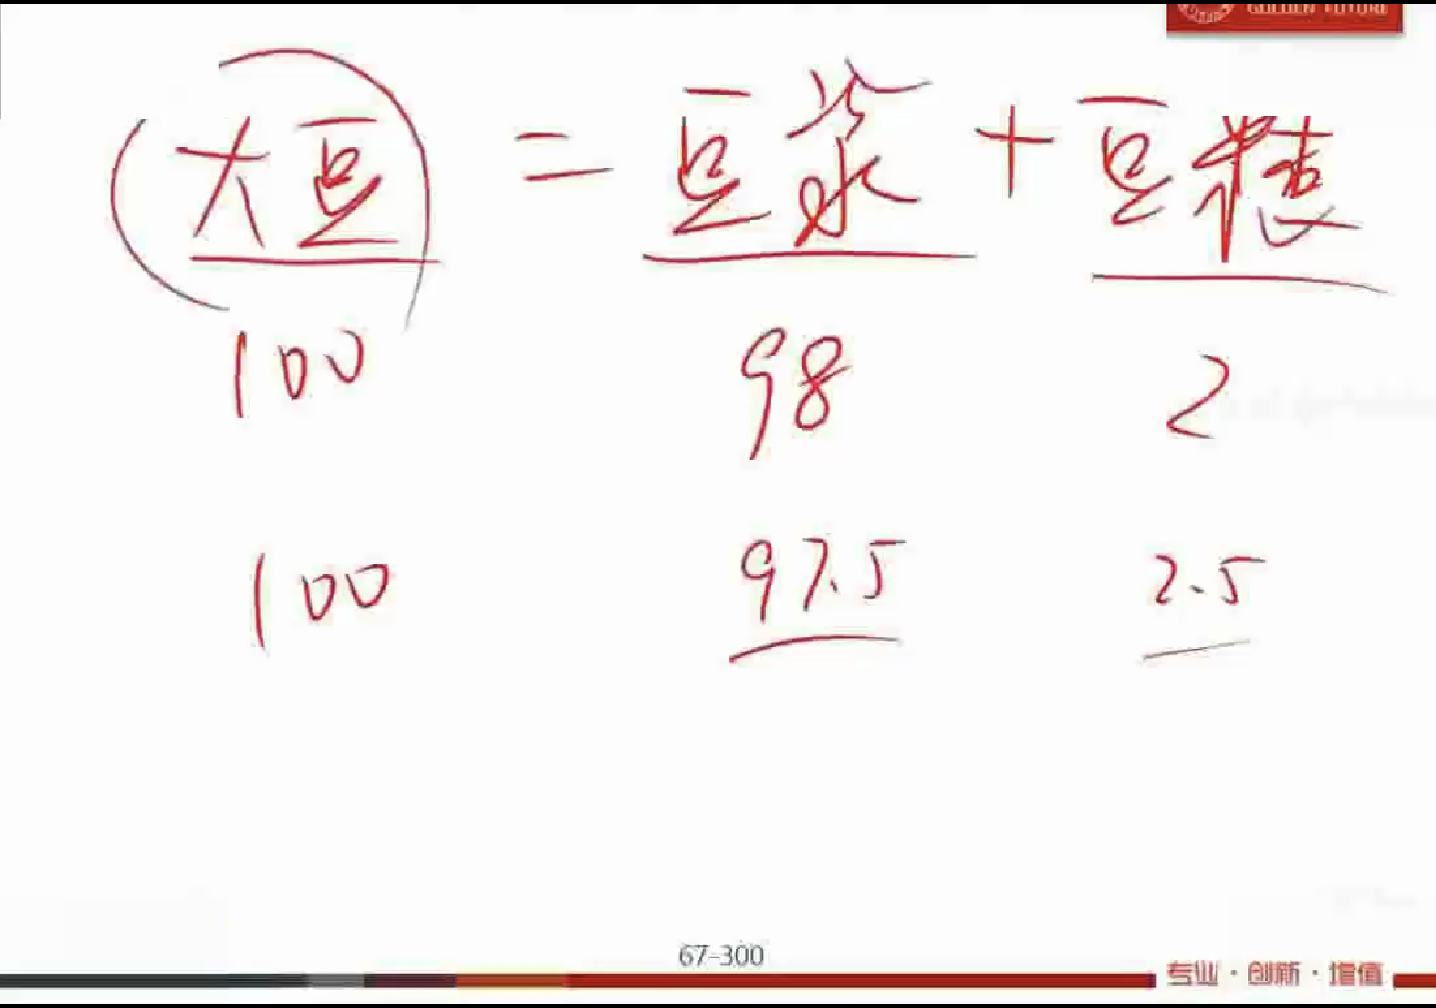 GOLDEN FUTURE
大豆 = 豆浆 + 豆糕
100 98 2
100 97.5 2.5
67-300
专业·创新·增值